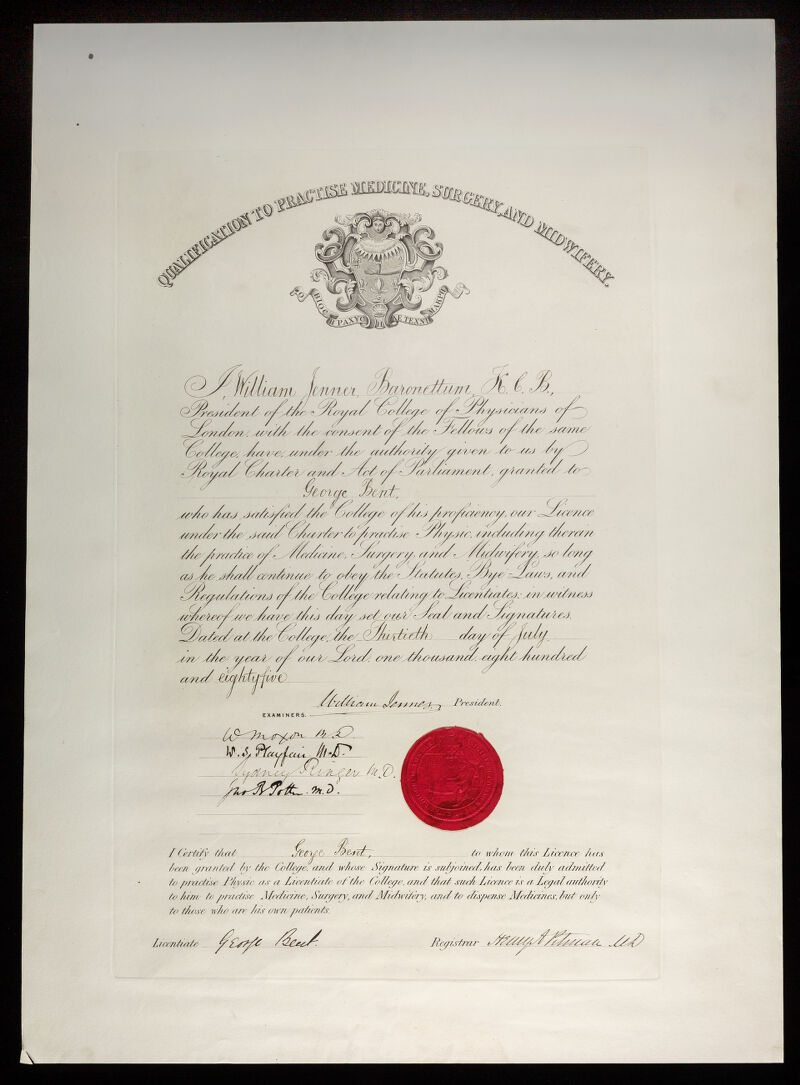 QUALIFICATION TO PRACTISE MEDICINE, SURGERY, AND MIDWIFERY.
Ὁ ΒΙΟϹ ΒΡΑΧΥϹ Η ΔΕ ΤΕΧΝΗ ΜΑΚΡΗ
I, William Jenner, Baronettum, K. C. B.,
President of the Royal College of Physicians of
London, with the consent of the Fellows of the same
College, have, under the authority given to us by
Royal Charter and Act of Parliament, granted to
George Bent,
who has satisfied the College of his proficiency, our Licence
under the said Charter to practise Physic, including therein
the practice of Medicine, Surgery, and Midwifery, so long
as he shall continue to obey the Statutes, Bye-Laws, and
Regulations of the College relating to Licentiates; in witness
whereof we have this day set our Seal and Signatures.
Dated at the College, the Thirtieth day of July,
in the year of our Lord, one thousand eight hundred
and eightyfive
William Jenner, President.
EXAMINERS.
W Moxon M.D.
W. S. Playfair M.D.
Sydney Ringer M.D.
Jno B Potter M.D.
I Certify that George Bent, to whom this Licence has
been granted by the College, and whose Signature is subjoined, has been duly admitted
to practise Physic as a Licentiate of the College, and that such Licence is a Legal authority
to him to practise Medicine, Surgery, and Midwifery, and to dispense Medicines, but only
to those who are his own patients.
Licentiate George Bent. Registrar Henry A Pitman MD